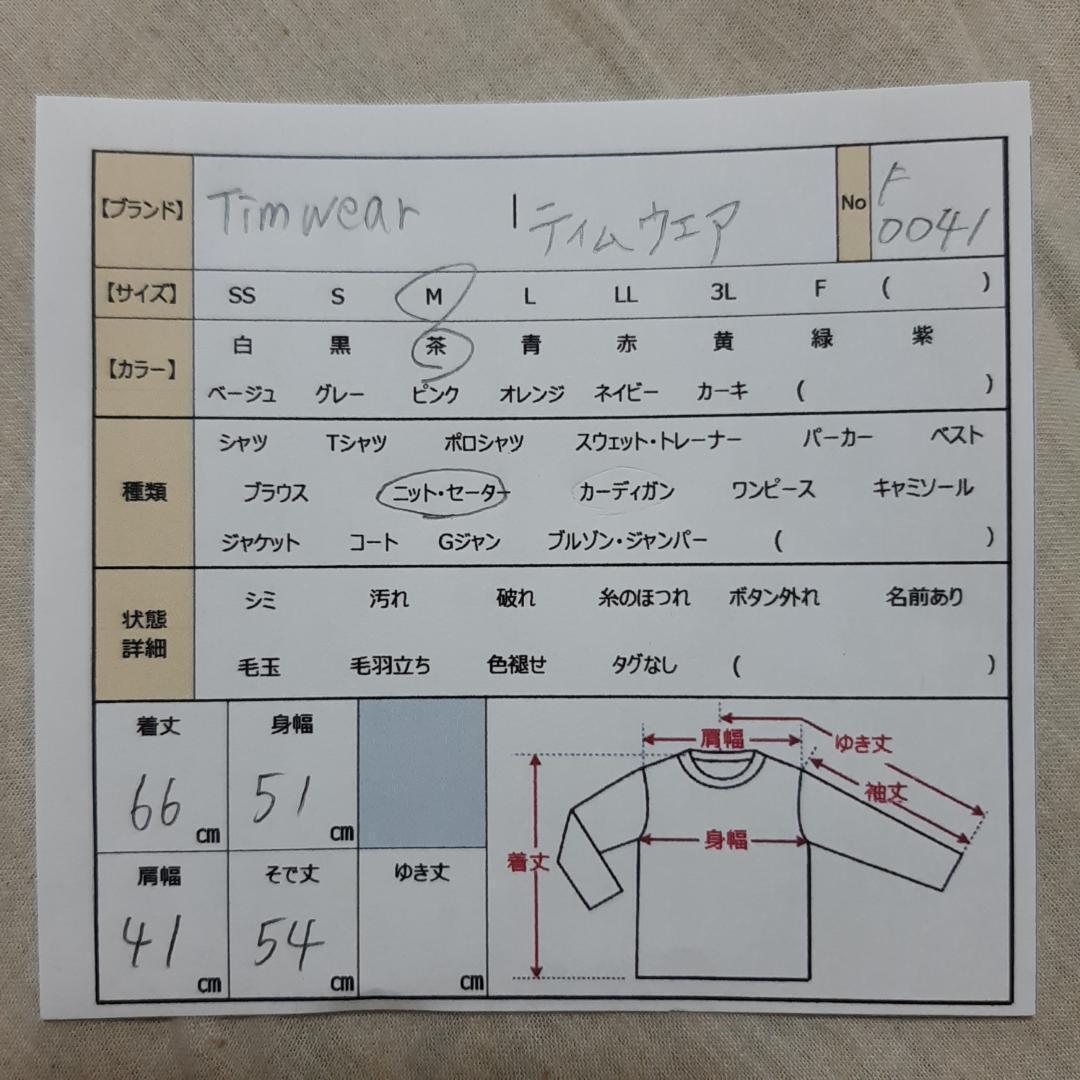 【ブランド】 Timwear | ティムウェア No F 0041
【サイズ】 SS S M L LL 3L F ( )
【カラー】 白 黒 茶 青 赤 黄 緑 紫
ベージュ グレー ピンク オレンジ ネイビー カーキ ( )
種類 シャツ Tシャツ ポロシャツ スウェット・トレーナー パーカー ベスト
ブラウス ニット・セーター カーディガン ワンピース キャミソール
ジャケット コート Gジャン ブルゾン・ジャンパー ( )
状態
詳細
シミ 汚れ 破れ 糸のほつれ ボタン外れ 名前あり
毛玉 毛羽立ち 色褪せ タグなし ( )
着丈 身幅
66 cm 51 cm
肩幅 そで丈 ゆき丈
41 cm 54 cm cm
肩幅 ゆき丈
袖丈
身幅
着丈